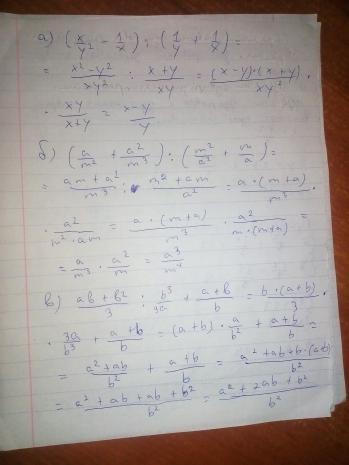 а) (x/y² - 1/x) : (1/y + 1/x) =
= x²-y²/xy² : x+y/xy = (x-y)·(x+y)/xy² ·
· xy/x+y = x-y/y
б) (a/m² + a²/m³) : (m²/a² + m/a) =
= am+a²/m³ : m²+am/a² = a·(m+a)/m³ ·
· a²/m²·am = a·(m+a)/m³ · a²/m·(m+a) =
= a/m³ · a²/m = a³/m⁴
в) ab+b²/3 : b³/3a + a+b/b = b·(a+b)/3 ·
· 3a/b³ + a+b/b = (a+b)·a/b² + a+b/b =
= a²+ab/b² + a+b/b = a²+ab+b·(a+b)/b²
= a²+ab+ab+b²/b² = a²+2ab+b²/b²